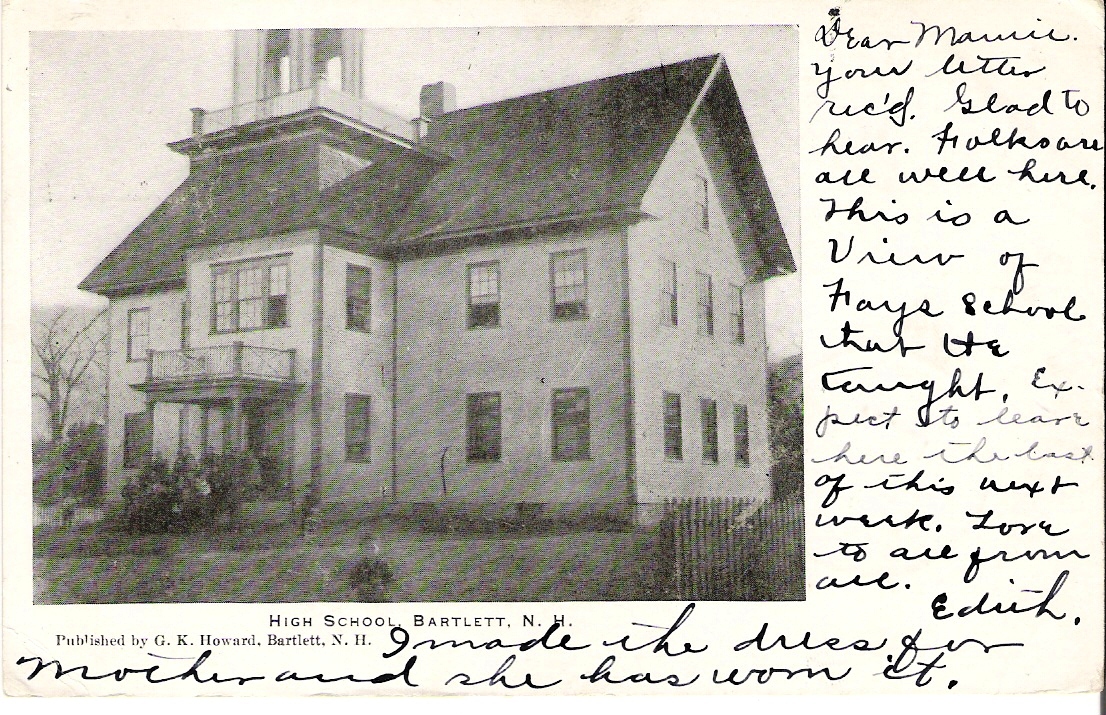 Dear Mamie.
your letter
rec'd. Glad to
hear. Folks are
all well here.
This is a
View of
Fays School
that He
taught. Ex-
pect to leave
here the last
of this next
week. Love
to all from
all.
Edith.
HIGH SCHOOL, BARTLETT, N. H.
Published by G. K. Howard, Bartlett, N. H.
I made the dress for
Mother and she has worn it.